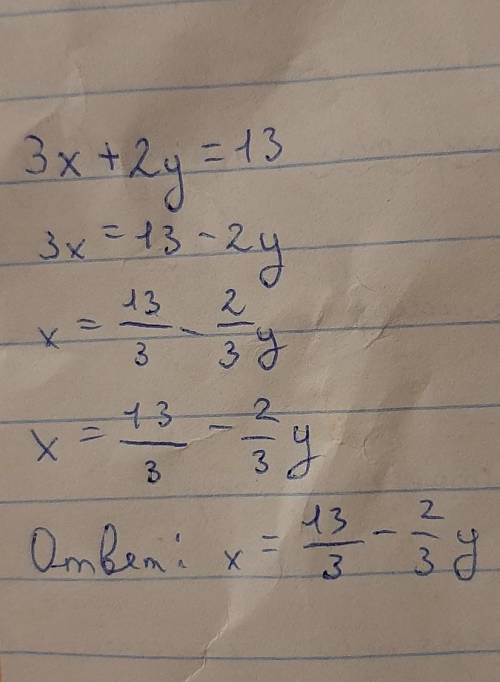 3x + 2y = 13
3x = 13 - 2y
x = 13/3 - 2/3 y
x = 13/3 - 2/3 y
Ответ: x = 13/3 - 2/3 y